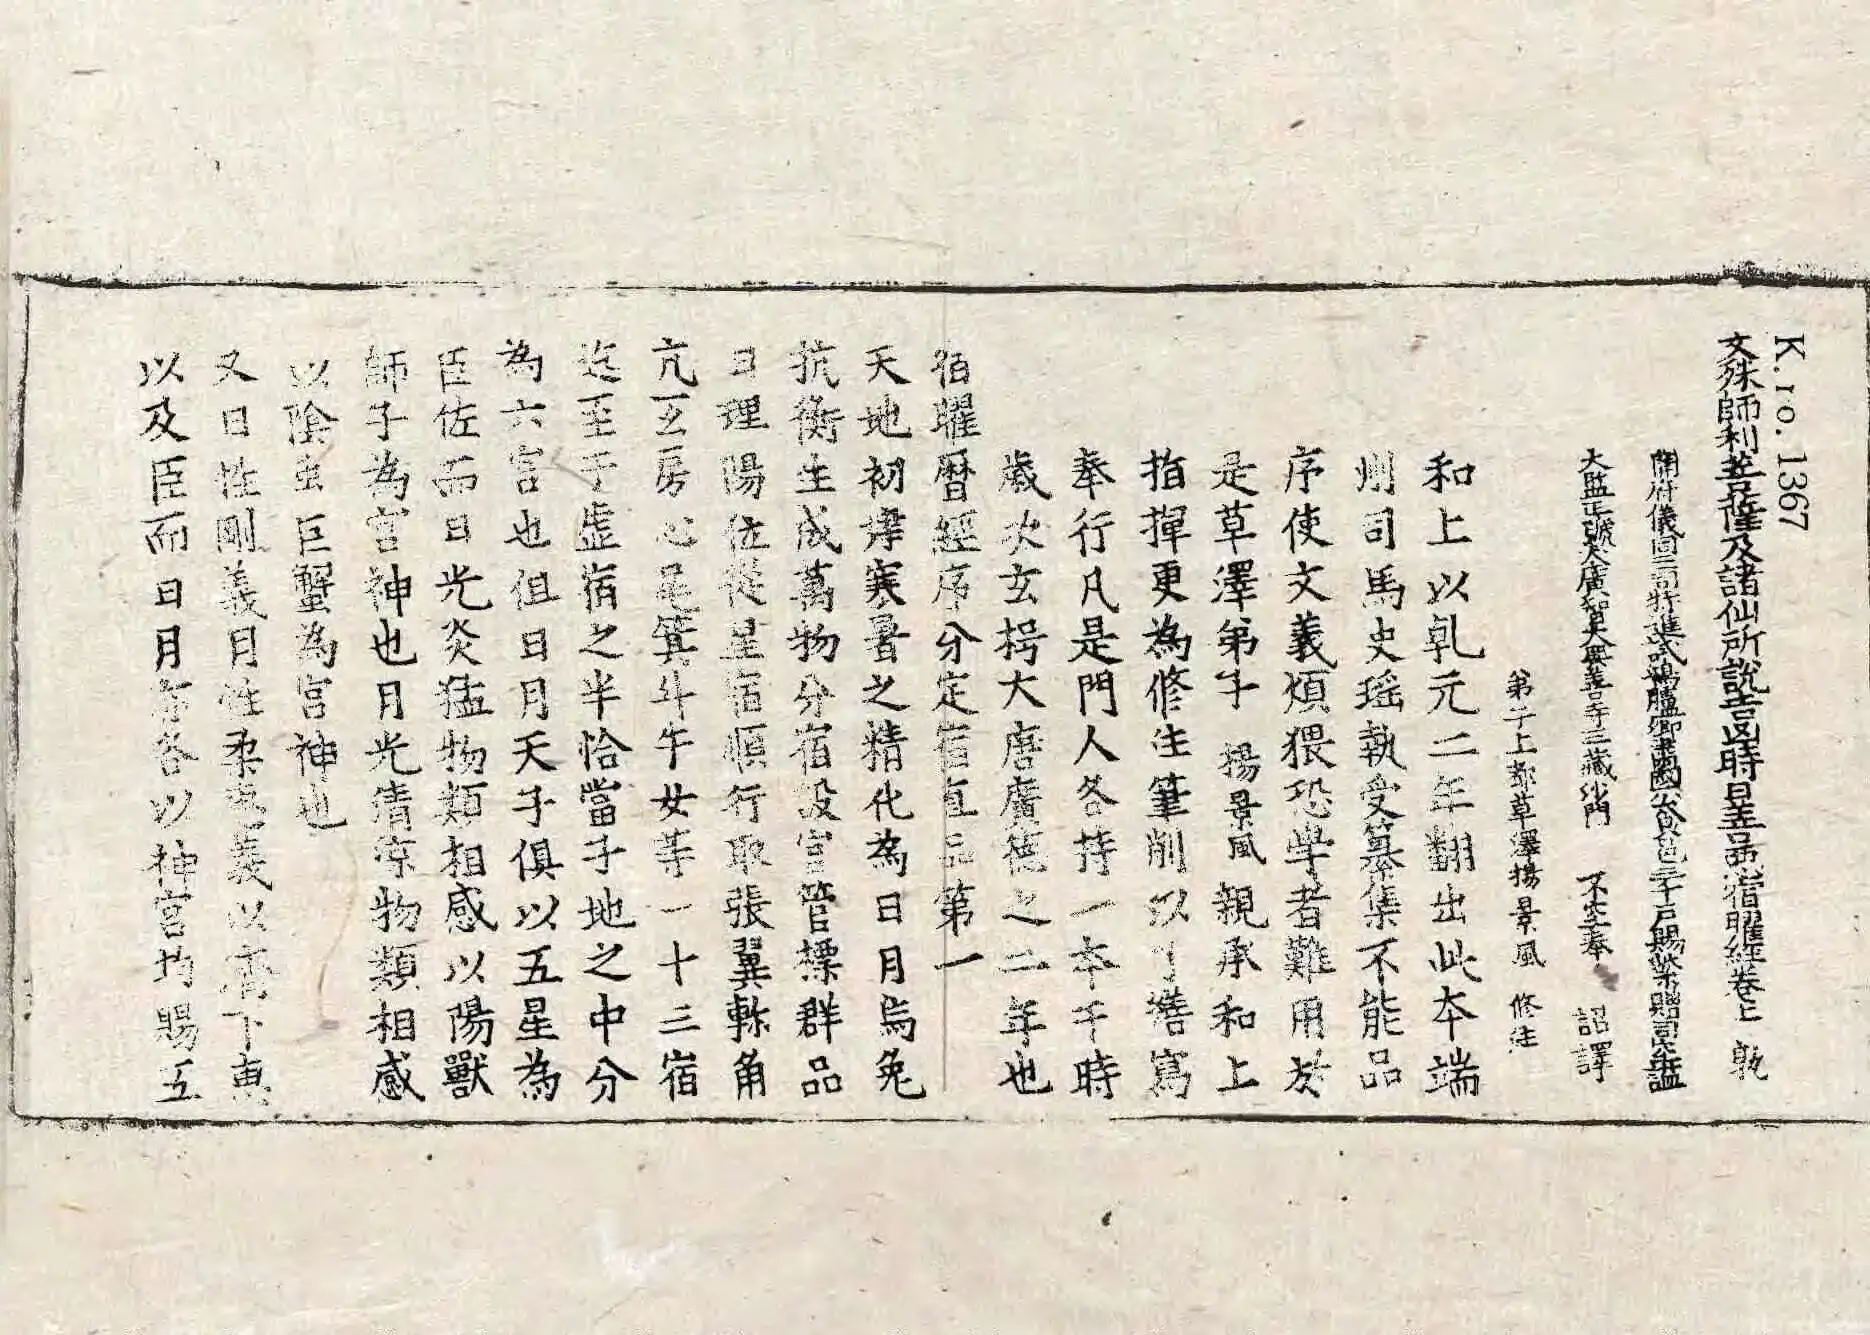 K.ro.1367
文殊師利菩薩及諸仙所說吉凶時日善惡宿曜經卷上 執
開府儀同三司特進試鴻臚卿肅國公食邑三千戶賜紫贈司空謚
大監正號大廣智大興善寺三藏沙門 不空奉 詔譯
弟子上都草澤楊景風 修注
和上以乹元二年翻出此本端
州司馬史瑶執受纂集不能品
序使文義煩猥恐學者難用於
是草澤弟子 楊景風親承和上
指揮更為修注筆削以了繕寫
奉行凡是門人各持一本于時
歲次玄枵大唐廣德之二年也
宿曜曆經序分定宿直品第一
天地初建寒暑之精化為日月烏兔
抗衡生成萬物分宿設宮管摽群品
日理陽位從星宿順行取張翼軫角
亢互房心尾箕斗牛女等一十三宿
迄至于虛宿之半恰當子地之中分
為六宮也但日月天子俱以五星為
臣佐而日光炎猛物類相感以陽獸
師子為宮神也月光清涼物類相感
以陰虫巨蟹為宮神也
又日性剛義月性柔惠義以濟下惠
以及臣而日月亦各以神宮均賜五